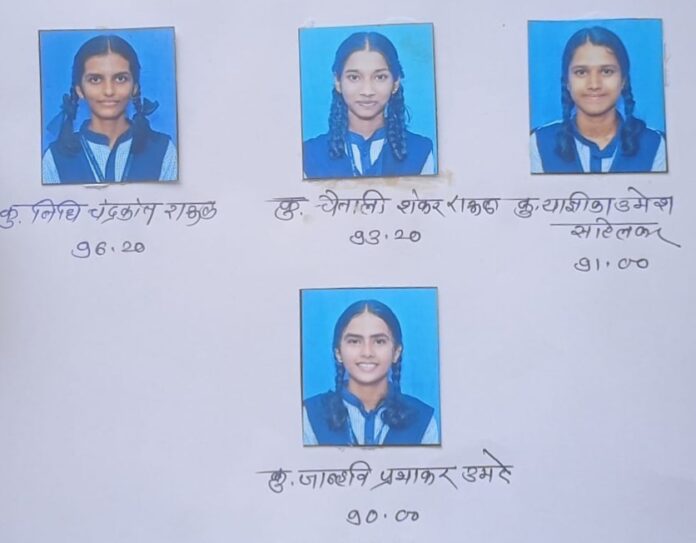 कु. निधि चंद्रकांत राऊळ
96.20
कु. चैताली शंकर राऊळ
93.20
कु. याज्ञीका उमेश
सटिलकर
91.00
कु. जान्हवि प्रभाकर उमटे
90.00